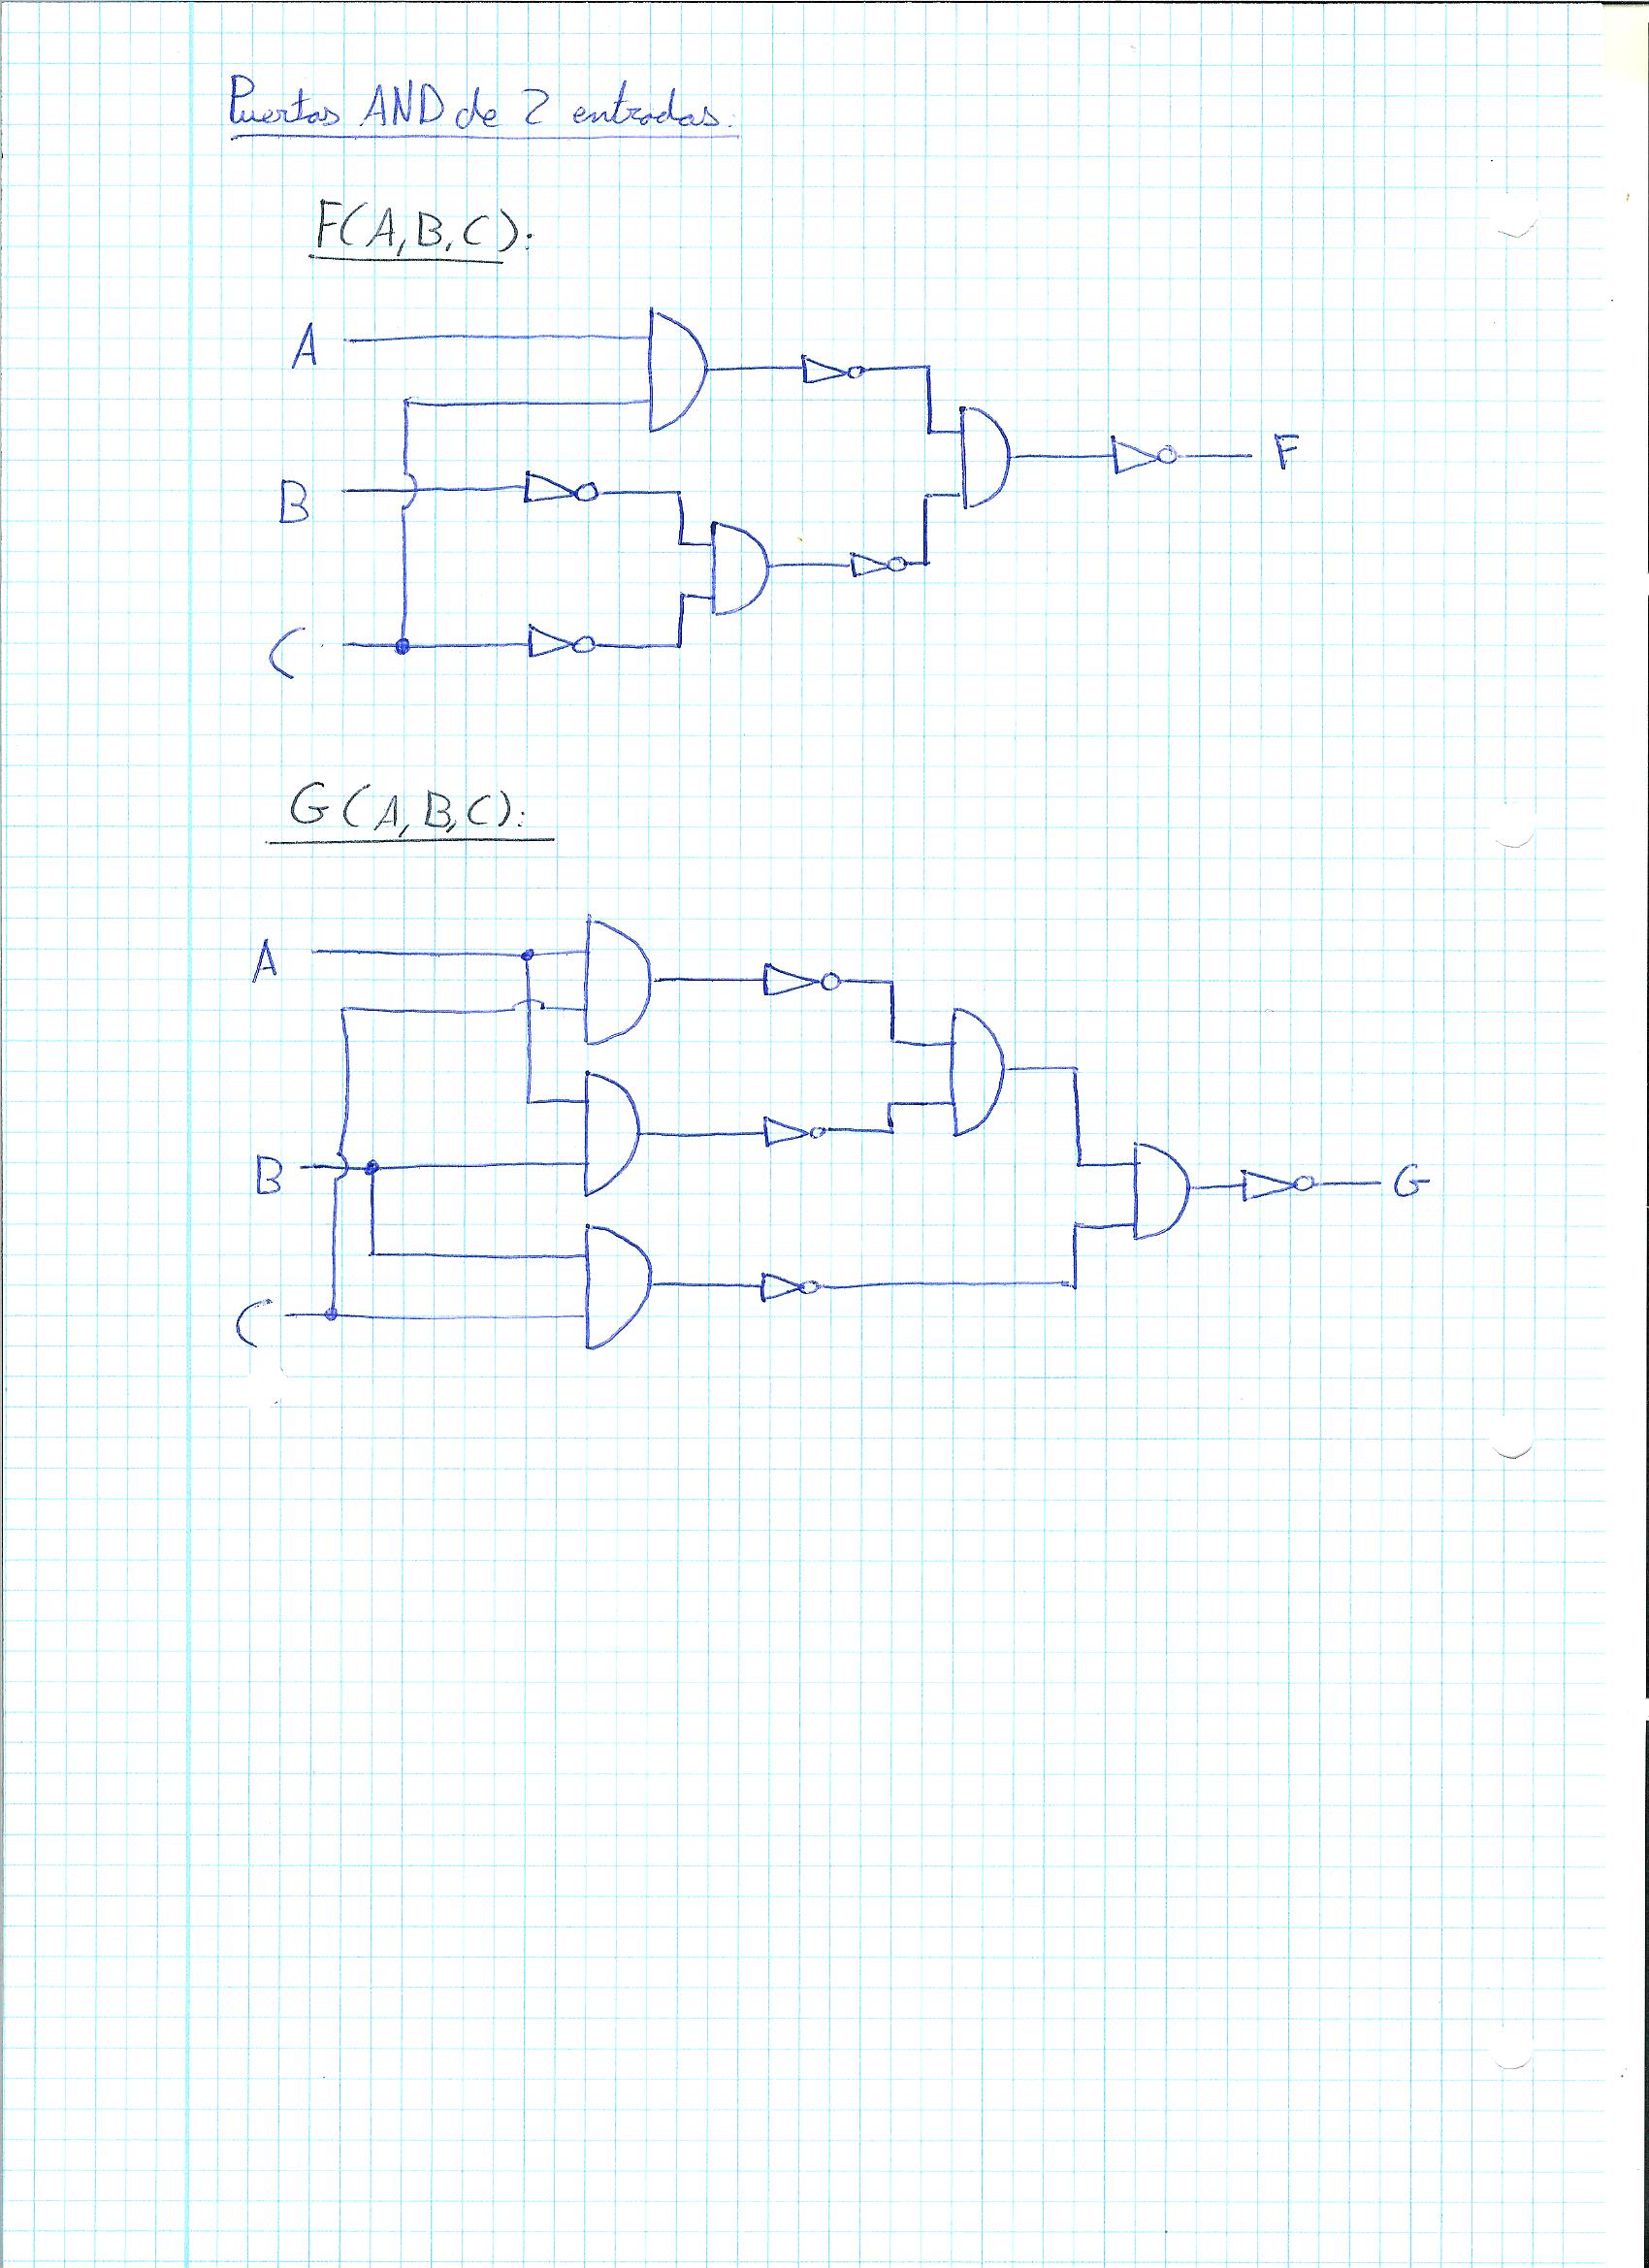 Puertas AND de 2 entradas.
F(A,B,C):
A
B
C
F
G(A,B,C):
A
B
C
G